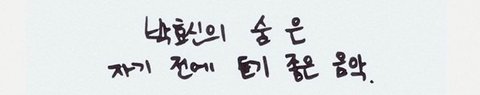 박효신의 숨 은
자기 전에 듣기 좋은 음악.